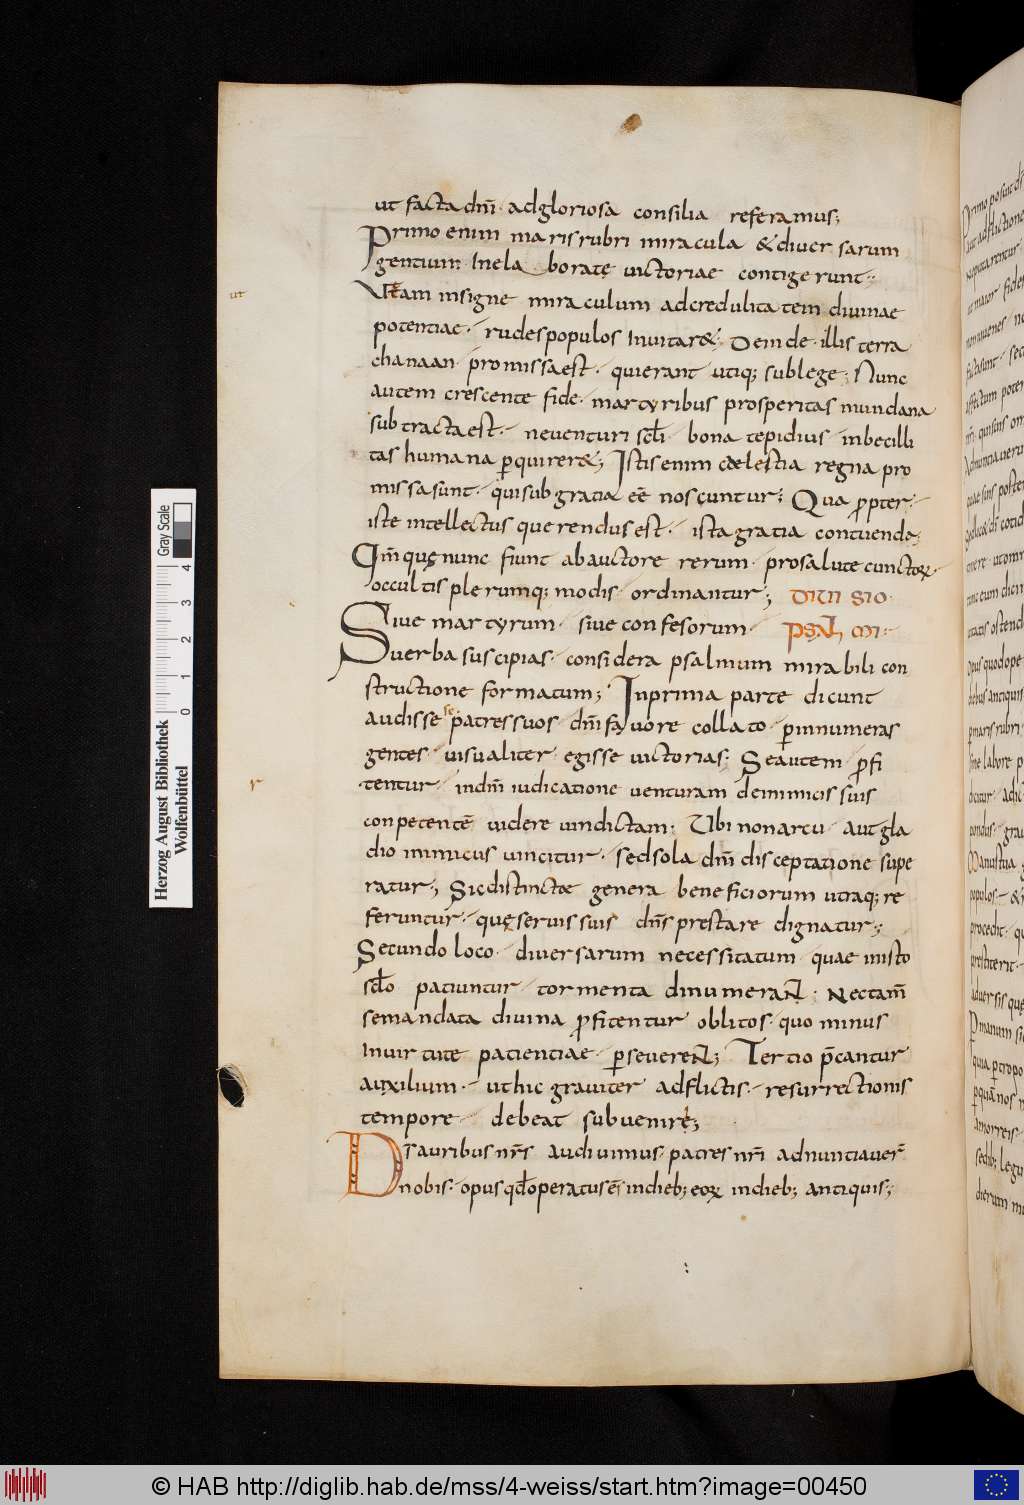 ut facta dnī· ad gloriosa consilia referamus;
Primo enim maris rubri miracula & diver sarum
gentium· In ela boratę victoriae contigerunt·:
Ut tam insigne miraculum ad credulitatem divinae
ut
potentiae· rudes populos Invitar&; Deinde· illis terra
chanaan· promissa est· qui erant utiq; sub lege; Nunc
autem crescente fide· martyribus prosperitas mundana
subtracta est· ne venturi scl̄i· bona tepidius inbecilli
tas humana p̱quirer&; Istis enim caelestia regna pro
missa sunt· qui sub gratia eē noscuntur; Qua propter·
iste intellectus querendus est· ista gratia contuenda;
Qm̄ quę nunc fiunt ab auctore rerum· pro salute cunctoꝝ·
occultis plerumq; modis ordinantur; DIVI SIO·
Sive martyrum· sive confesorum· PSAL MI·
Si verba suscipias· considera psalmum mirabili con
structione formatum; In prima parte dicunt
audisse se patres suos dnī favore collato· p̱ innumeras
gentes· visualiter· egisse victorias; Se autem ꝓfi
tentur· in dnī iudicatione venturam de inimicis suis
r
conpetentē videre vindictam; Ubi non arcu· aut gla
dio inimicus vincitur· sed sola dnī disceptatione supe
ratur; Sic distinctae genera beneficiorum utraq; re
feruntur· quę servis suis dn̄s prestare dignatur;
Secundo loco· diversarum necessitatum quae in isto
scl̄o patiuntur· tormenta dinumeraNT; Nec tam̄
se mandata divina ꝓfitentur oblitos· quo minus
In virtute patientiae· p̱severeNT; Tertio p̄cantur
auxilium· ut hic graviter adflictis· resurrectionis
tempore· debeat subvenire;
Ds̄ auribus nrīs audivimus· patres nrī adnuntiaver̄
nobis· opus qd̄ operatus ēs in dieb; eoꝝ in dieb; antiquis;
Herzog August Bibliothek
Wolfenbüttel
0 1 2 3 4
Gray Scale
© HAB http://diglib.hab.de/mss/4-weiss/start.htm?image=00450